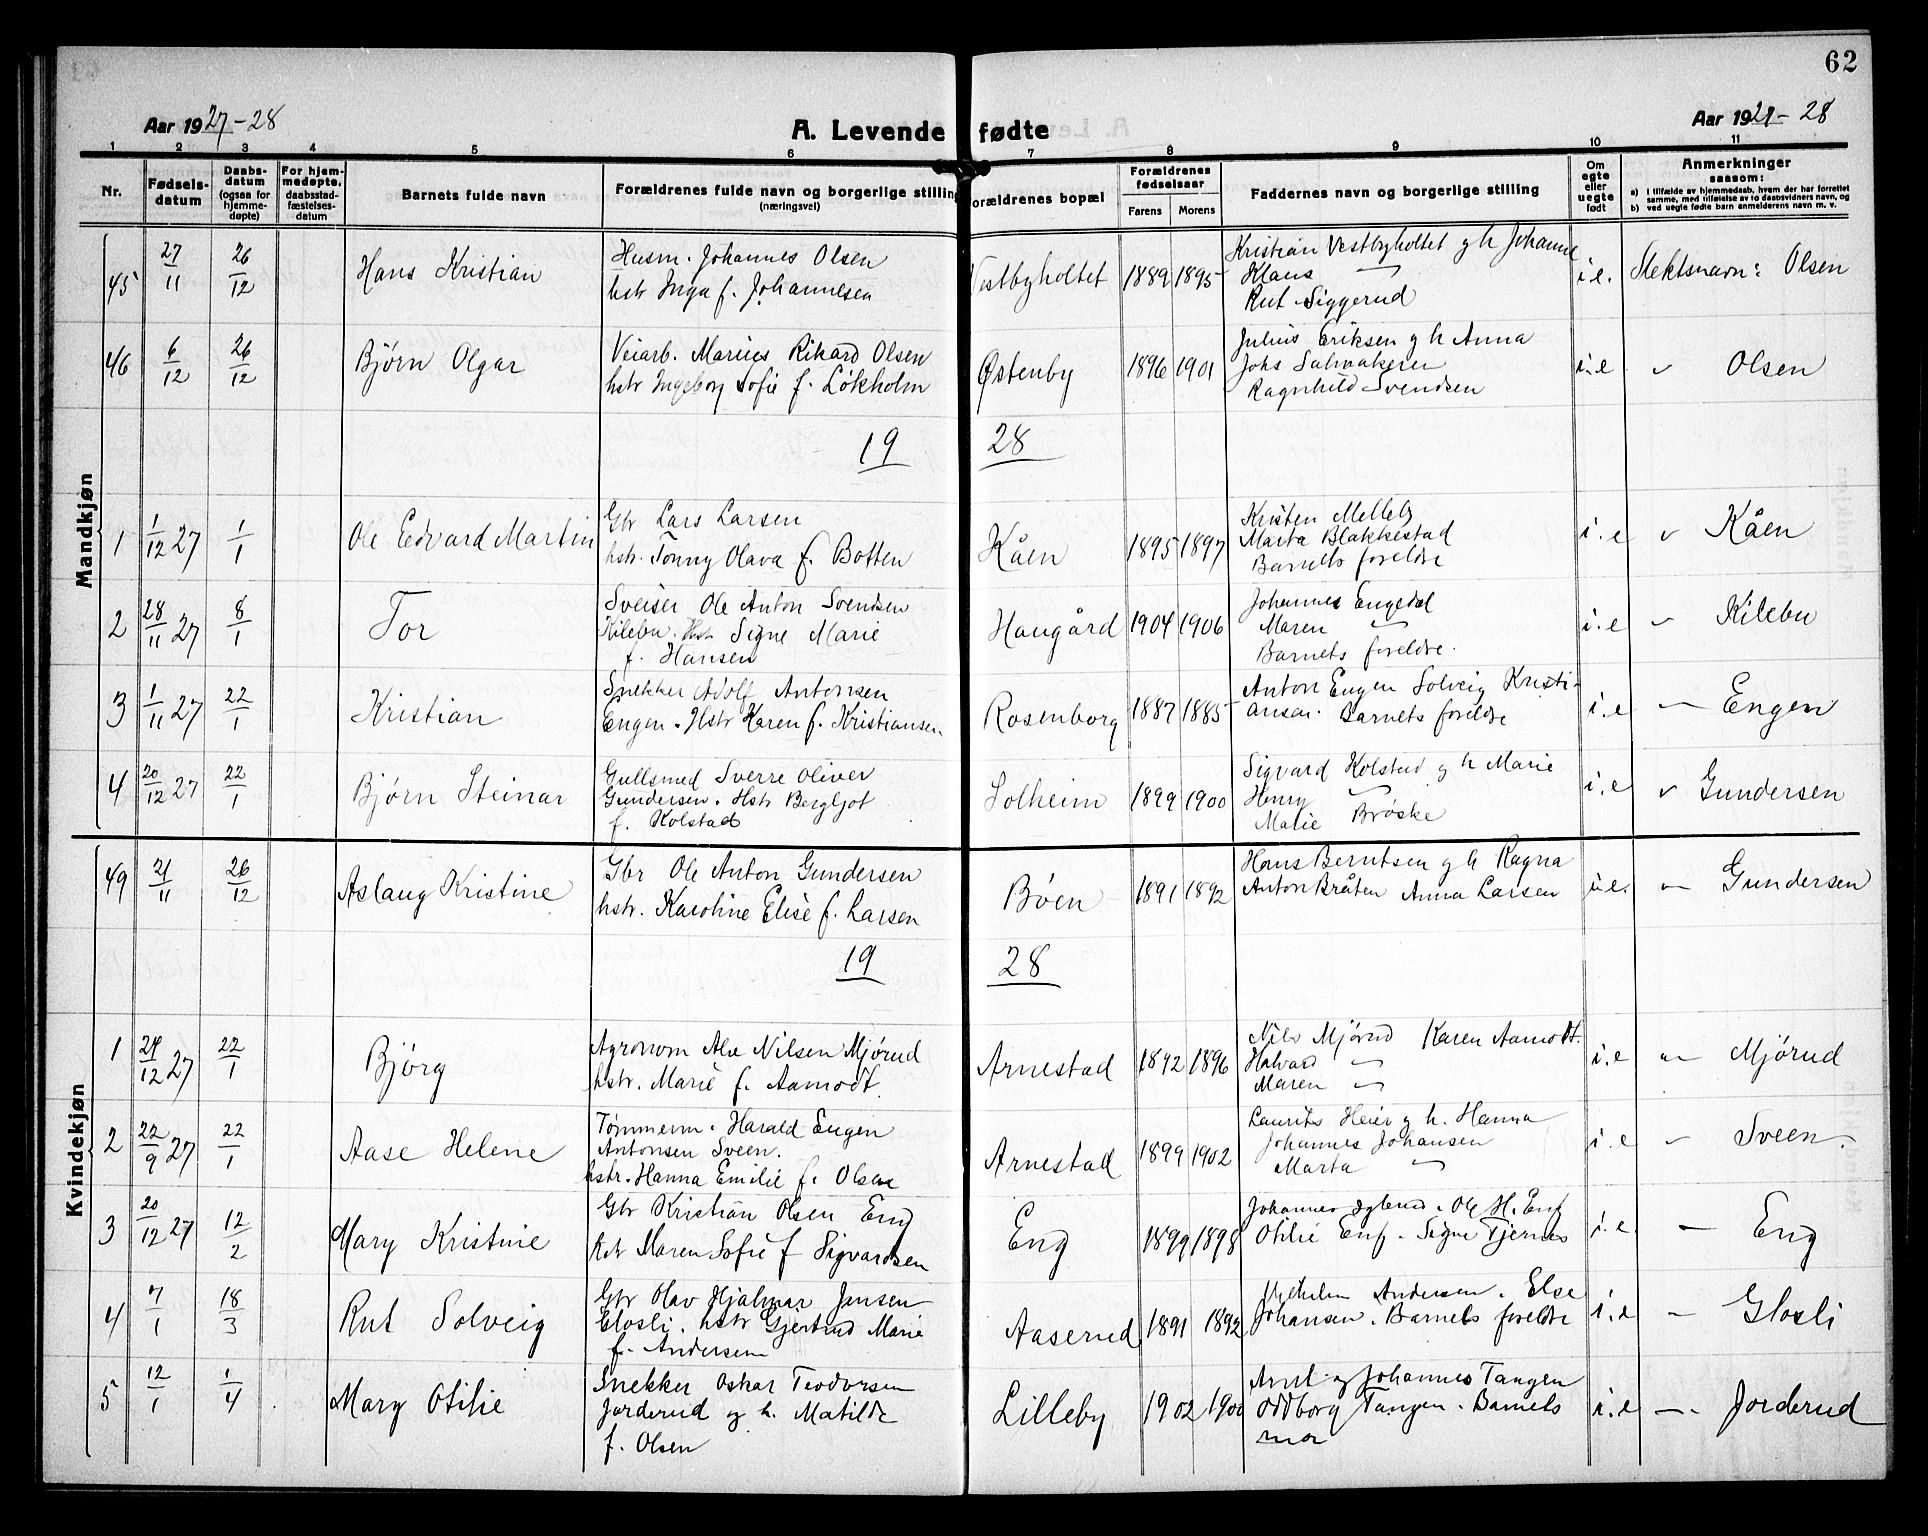 62
Aar 1927-28
A. Levende fødte
Aar 1927-28
1 2 3 4 5 6 7 8 9 10 11
Nr.
Fødsels-
datum
Daabs-
datum
(ogsaa for
hjemme-
døpte)
For hjem-
medøpte,
daabsstad-
fæstelses-
datum
Barnets fulde navn
Forældrenes fulde navn og borgerlige stilling
(næringsvei)
Forældrenes bopæl
Forældrenes
fødselsaar
Farens Morens
Faddernes navn og borgerlige stilling
Om
egte
eller
uegte
født
Anmerkninger
saasom:
a) i tilfælde av hjemmedaab, hvem der har forrettet
samme, med tilføielse av to daabsvidners navn, og
b) ved uegte fødte barn anmelderens navn m. v.
Mandkjøn
45 27/11 26/12 Hans Kristian
Husm. Johannes Olsen
hstr Inga f. Johannesen
Vestbyholtet 1889 1895
Kristian Vestbyholtet g h Johanne
Klaus —
Rut Siggerud
i.e. Slektsnavn: Olsen
46 6/12 26/12 Bjørn Olgar
Veiarb. Marius Rikard Olsen
hstr Ingeborg Sofie f. Løkholm
Østenby 1896 1901
Julius Eriksen g h Anna
Johs
Ragnhild Svendsen
i.e " Olsen
19 28
1 1/12 27 1/1 Ole Edvard Martin
Gbr Lars Larsen
hstr. Tonny Olava f. Botten
Kåen 1895 1897
Kristen Melleby
Marta Blakkestad
Barnets foreldre
i.e " Kåen
2 28/11 27 8/1 Tor
Sveiser Ole Anton Svendsen
Kilebu. Hstr Signe Marie
f. Hansen
Haugård 1904 1906
Johannes Engedal
Maren —
Barnets foreldre.
i.e " Kilebu
3 1/11 27 22/1 Kristian
Snekker Adolf Antonsen
Engen. Hstr Karen f. Kristiansen.
Rosenborg 1887 1885
Anton Engen Solveig Kristi-
ansen. Barnets foreldre
i.e — Engen
4 20/12 27 22/1 Bjørn Steinar
Gullsmed Sverre Oliver
Gundersen. Hstr Bergljot
f. Kolstad
Solheim 1899 1900
Sigvard Kolstad g h Marie
Henry —
Marie Brøske
i.e " Gundersen
Kvindekjøn
49 21/11 26/12 Aslaug Kristine
Gbr Ole Anton Gundersen
hstr. Karoline Elise f. Larsen
Bøen 1891 1892
Hans Berntsen g h Ragna
Anton Bråten Anna Larsen
i.e. — Gundersen
19 28
1 24/12 27 22/1 Bjørg
Agronom Alv Nilsen Mjørud
hstr. Marie f. Aamodt.
Arnestad 1892 1896
Nils Mjørud Karen Aamodt.
Halvard —
Maren —
i.e — Mjørud
2 22/9 27 22/1 Aase Helene
Tømmerm. Harald Engen
Antonsen Sveen.
hstr. Hanna Emilie f. Olsen
Arnestad 1899 1902
Laurits Heier g h. Hanna
Johannes Johansen
Marta —
i.e " Sveen.
3 20/12 27 12/2 Mary Kristine
Gbr Kristian Olsen Eng
hstr Maren Sofie f Sigvardsen
Eng 1899 1898
Johannes Ole H. Eng
Otilie Eng. Signe Tjernes
i.e. — Eng
4 7/1 18/3 Rut Solveig
Gbr Olav Hjalmar Jensen
Glosli. hstr Gjertrud Marie
f. Andersen
Aaserud 1891 1892
Vilhelm Andersen. Else
Johansen. Barnets foreldre
i.e — Glosli
5 12/1 1/4 Mary Otilie
Snekker Oskar Teodorsen
Jorderud og h. Matilde
f. Olsen
Lilleby 1902 1900
Arnt og Johannes Tangen
Oddborg Tangen. Barnets
mor
i.e — Jorderud